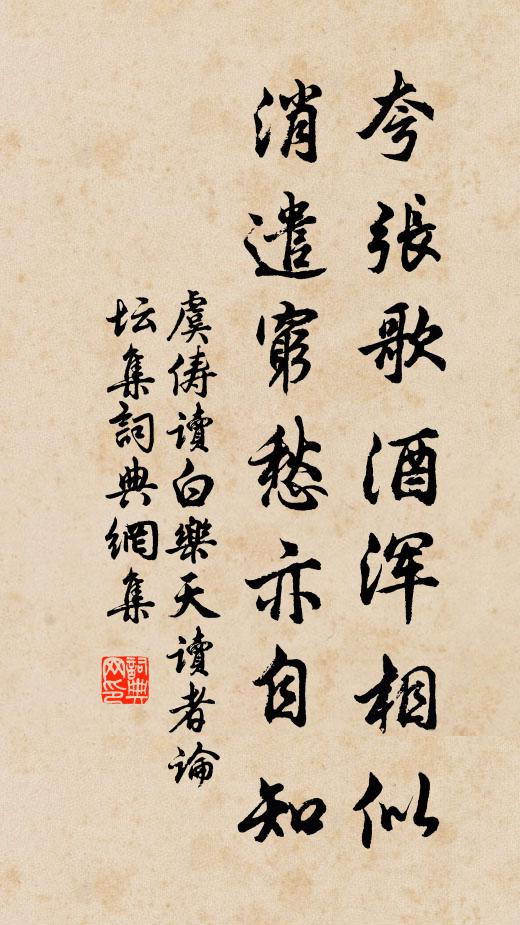 夸張歌酒浑相似
消遣窮愁亦自知
虞俦讀白樂天讀者論
坛集詞典網集
詞典網印